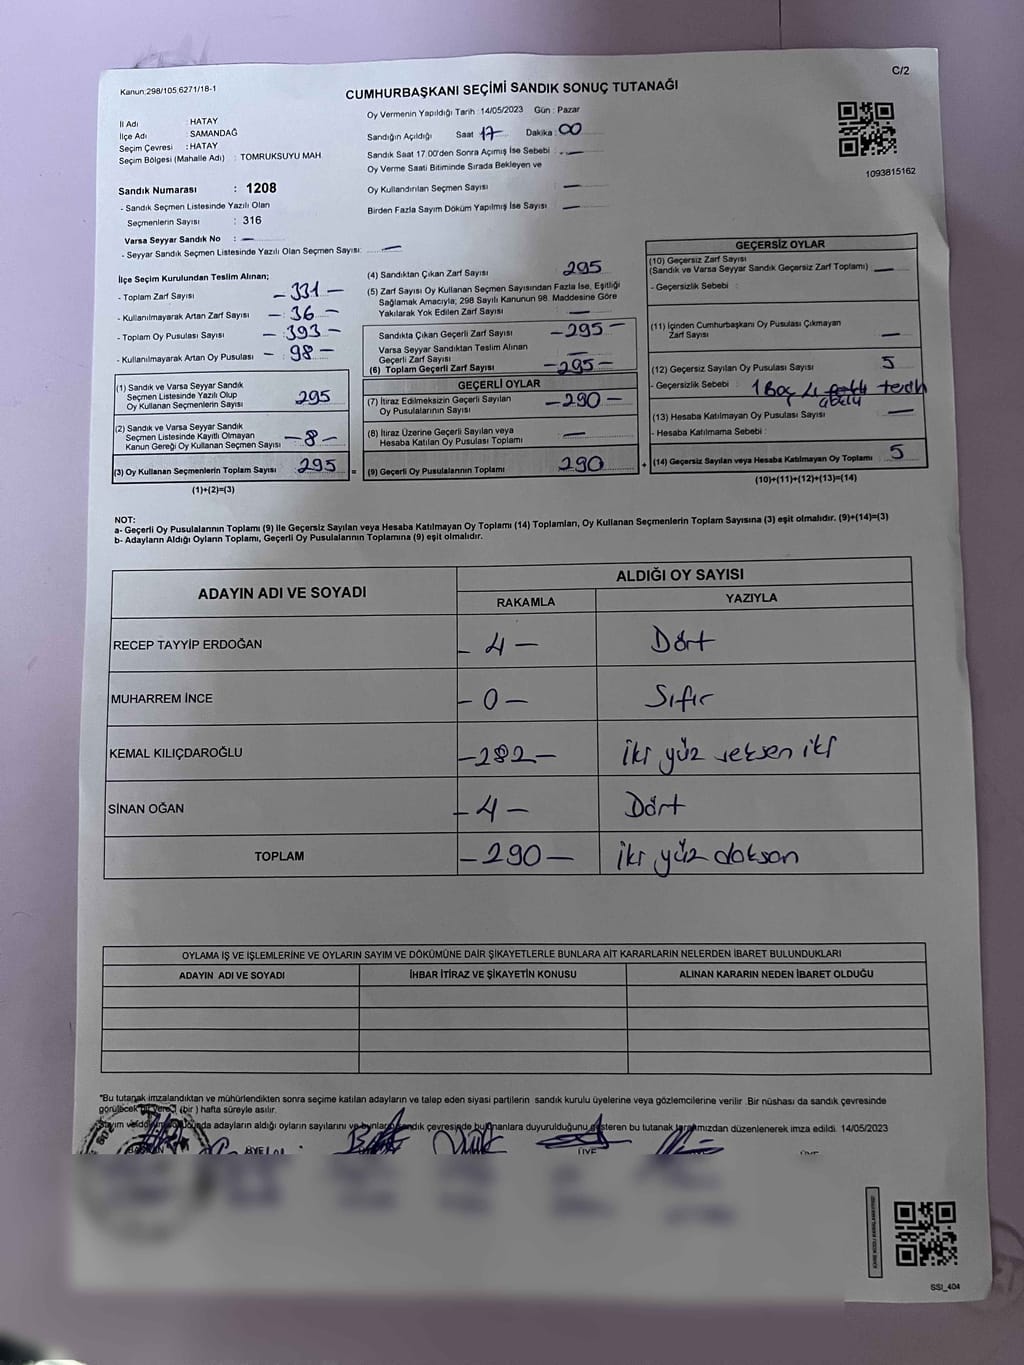 Kanun:298/105,6271/18-1
C/2
CUMHURBAŞKANI SEÇİMİ SANDIK SONUÇ TUTANAĞI
İl Adı : HATAY
İlçe Adı : SAMANDAĞ
Seçim Çevresi : HATAY
Seçim Bölgesi (Mahalle Adı) : TOMRUKSUYU MAH
Oy Vermenin Yapıldığı Tarih : 14/05/2023 Gün : Pazar
Sandığın Açıldığı Saat 17 Dakika : 00
Sandık Saat 17.00'den Sonra Açımış İse Sebebi : —
Oy Verme Saati Bitiminde Sırada Bekleyen ve
Oy Kullandırılan Seçmen Sayısı —
Birden Fazla Sayım Döküm Yapılmış İse Sayısı —
1093815162
Sandık Numarası : 1208
- Sandık Seçmen Listesinde Yazılı Olan
Seçmenlerin Sayısı : 316
Varsa Seyyar Sandık No : —
- Seyyar Sandık Seçmen Listesinde Yazılı Olan Seçmen Sayısı: —
İlçe Seçim Kurulundan Teslim Alınan;
- Toplam Zarf Sayısı - 331 -
- Kullanılmayarak Artan Zarf Sayısı - 36 -
- Toplam Oy Pusulası Sayısı - 393 -
- Kullanılmayarak Artan Oy Pusulası - 98 -
(1) Sandık ve Varsa Seyyar Sandık
Seçmen Listesinde Yazılı Olup
Oy Kullanan Seçmenlerin Sayısı 295
(2) Sandık ve Varsa Seyyar Sandık
Seçmen Listesinde Kayıtlı Olmayan
Kanun Gereği Oy Kullanan Seçmen Sayısı
(3) Oy Kullanan Seçmenlerin Toplam Sayısı 295 =
(1)+(2)=(3)
(4) Sandıktan Çıkan Zarf Sayısı 295
(5) Zarf Sayısı Oy Kullanan Seçmen Sayısından Fazla İse, Eşitliği
Sağlamak Amacıyla; 298 Sayılı Kanunun 98. Maddesine Göre
Yakılarak Yok Edilen Zarf Sayısı —
Sandıkta Çıkan Geçerli Zarf Sayısı - 295 -
Varsa Seyyar Sandıktan Teslim Alınan
Geçerli Zarf Sayısı —
(6) Toplam Geçerli Zarf Sayısı - 295 -
GEÇERLİ OYLAR
(7) İtiraz Edilmeksizin Geçerli Sayılan
Oy Pusulalarının Sayısı - 290 -
(8) İtiraz Üzerine Geçerli Sayılan veya
Hesaba Katılan Oy Pusulası Toplamı —
(9) Geçerli Oy Pusulalarının Toplamı 290 +
GEÇERSİZ OYLAR
(10) Geçersiz Zarf Sayısı
(Sandık ve Varsa Seyyar Sandık Geçersiz Zarf Toplamı) —
- Geçersizlik Sebebi :
(11) İçinden Cumhurbaşkanı Oy Pusulası Çıkmayan
Zarf Sayısı —
(12) Geçersiz Sayılan Oy Pusulası Sayısı 5
- Geçersizlik Sebebi : 1 Boş 4 tercih
(13) Hesaba Katılmayan Oy Pusulası Sayısı —
- Hesaba Katılmama Sebebi :
(14) Geçersiz Sayılan veya Hesaba Katılmayan Oy Toplamı 5
(10)+(11)+(12)+(13)=(14)
NOT:
a- Geçerli Oy Pusulalarının Toplamı (9) ile Geçersiz Sayılan veya Hesaba Katılmayan Oy Toplamı (14) Toplamları, Oy Kullanan Seçmenlerin Toplam Sayısına (3) eşit olmalıdır. (9)+(14)=(3)
b- Adayların Aldığı Oyların Toplamı, Geçerli Oy Pusulalarının Toplamına (9) eşit olmalıdır.
ADAYIN ADI VE SOYADI
ALDIĞI OY SAYISI
RAKAMLA YAZIYLA
RECEP TAYYİP ERDOĞAN - 4 - Dört
MUHARREM İNCE - 0 - Sıfır
KEMAL KILIÇDAROĞLU - 282 - iki yüz seksen iki
SİNAN OĞAN - 4 - Dört
TOPLAM - 290 - iki yüz doksan
OYLAMA İŞ VE İŞLEMLERİNE VE OYLARIN SAYIM VE DÖKÜMÜNE DAİR ŞİKAYETLERLE BUNLARA AİT KARARLARIN NELERDEN İBARET BULUNDUKLARI
ADAYIN ADI VE SOYADI İHBAR İTİRAZ VE ŞİKAYETİN KONUSU ALINAN KARARIN NEDEN İBARET OLDUĞU
*Bu tutanak imzalandıktan ve mühürlendikten sonra seçime katılan adayların ve talep eden siyasi partilerin sandık kurulu üyelerine veya gözlemcilerine verilir .Bir nüshası da sandık çevresinde
görülecek bir yere 1 (bir ) hafta süreyle asılır.
adayların aldığı oyların sayılarını ve bunların sandık çevresinde bulunanlara duyurulduğunu gösteren bu tutanak tarafımızdan düzenlenerek imza edildi. 14/05/2023
ÜYE
SSI_404